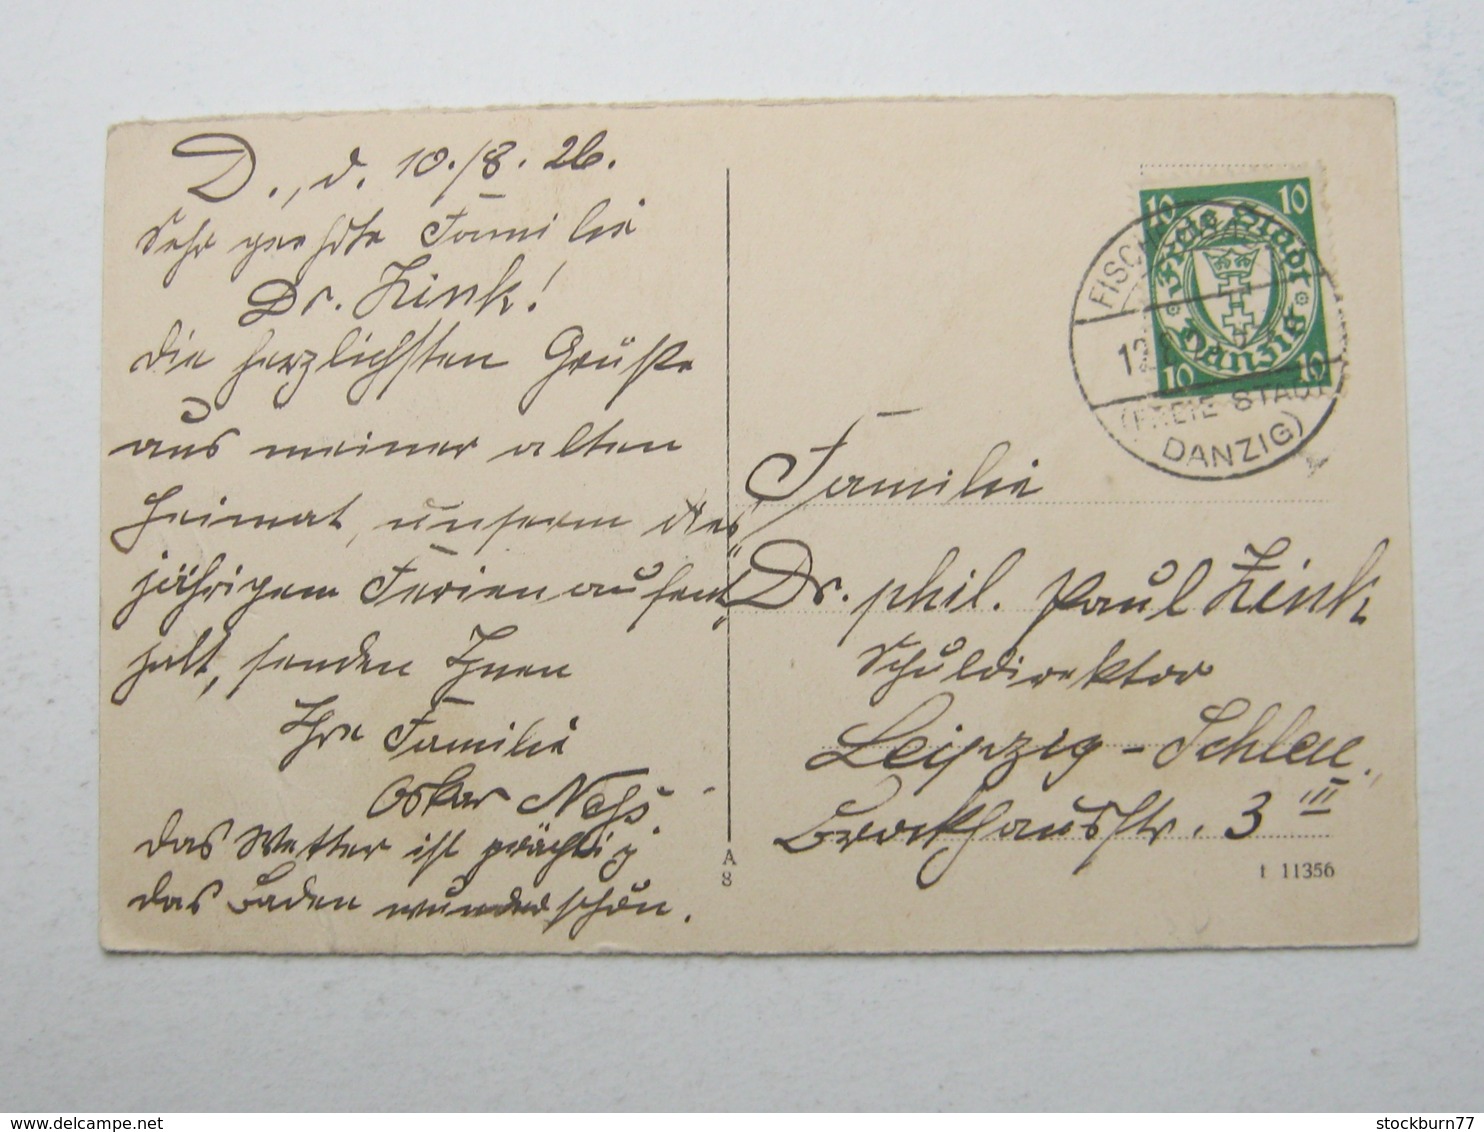 D., d. 10./8. 26.
Sehr geehrte Familie
Dr. Zink!
Die herzlichsten Grüße
aus meiner alten
Heimat, unserm dies
jährigen Ferienaufent„
halt, senden Ihnen
Ihre Familie
Oskar
Das Wetter ist prächtig
das Baden wunderschön.
A
8
10 10
Freie Stadt
Danzig
10 10
FISCH
(FREIE STADT
DANZIG)
Familie
Dr. phil. Paul Zink
Schuldirektor
Leipzig-Schleu.,
Brockhausstr. 3 III
t 11356
stockburn77